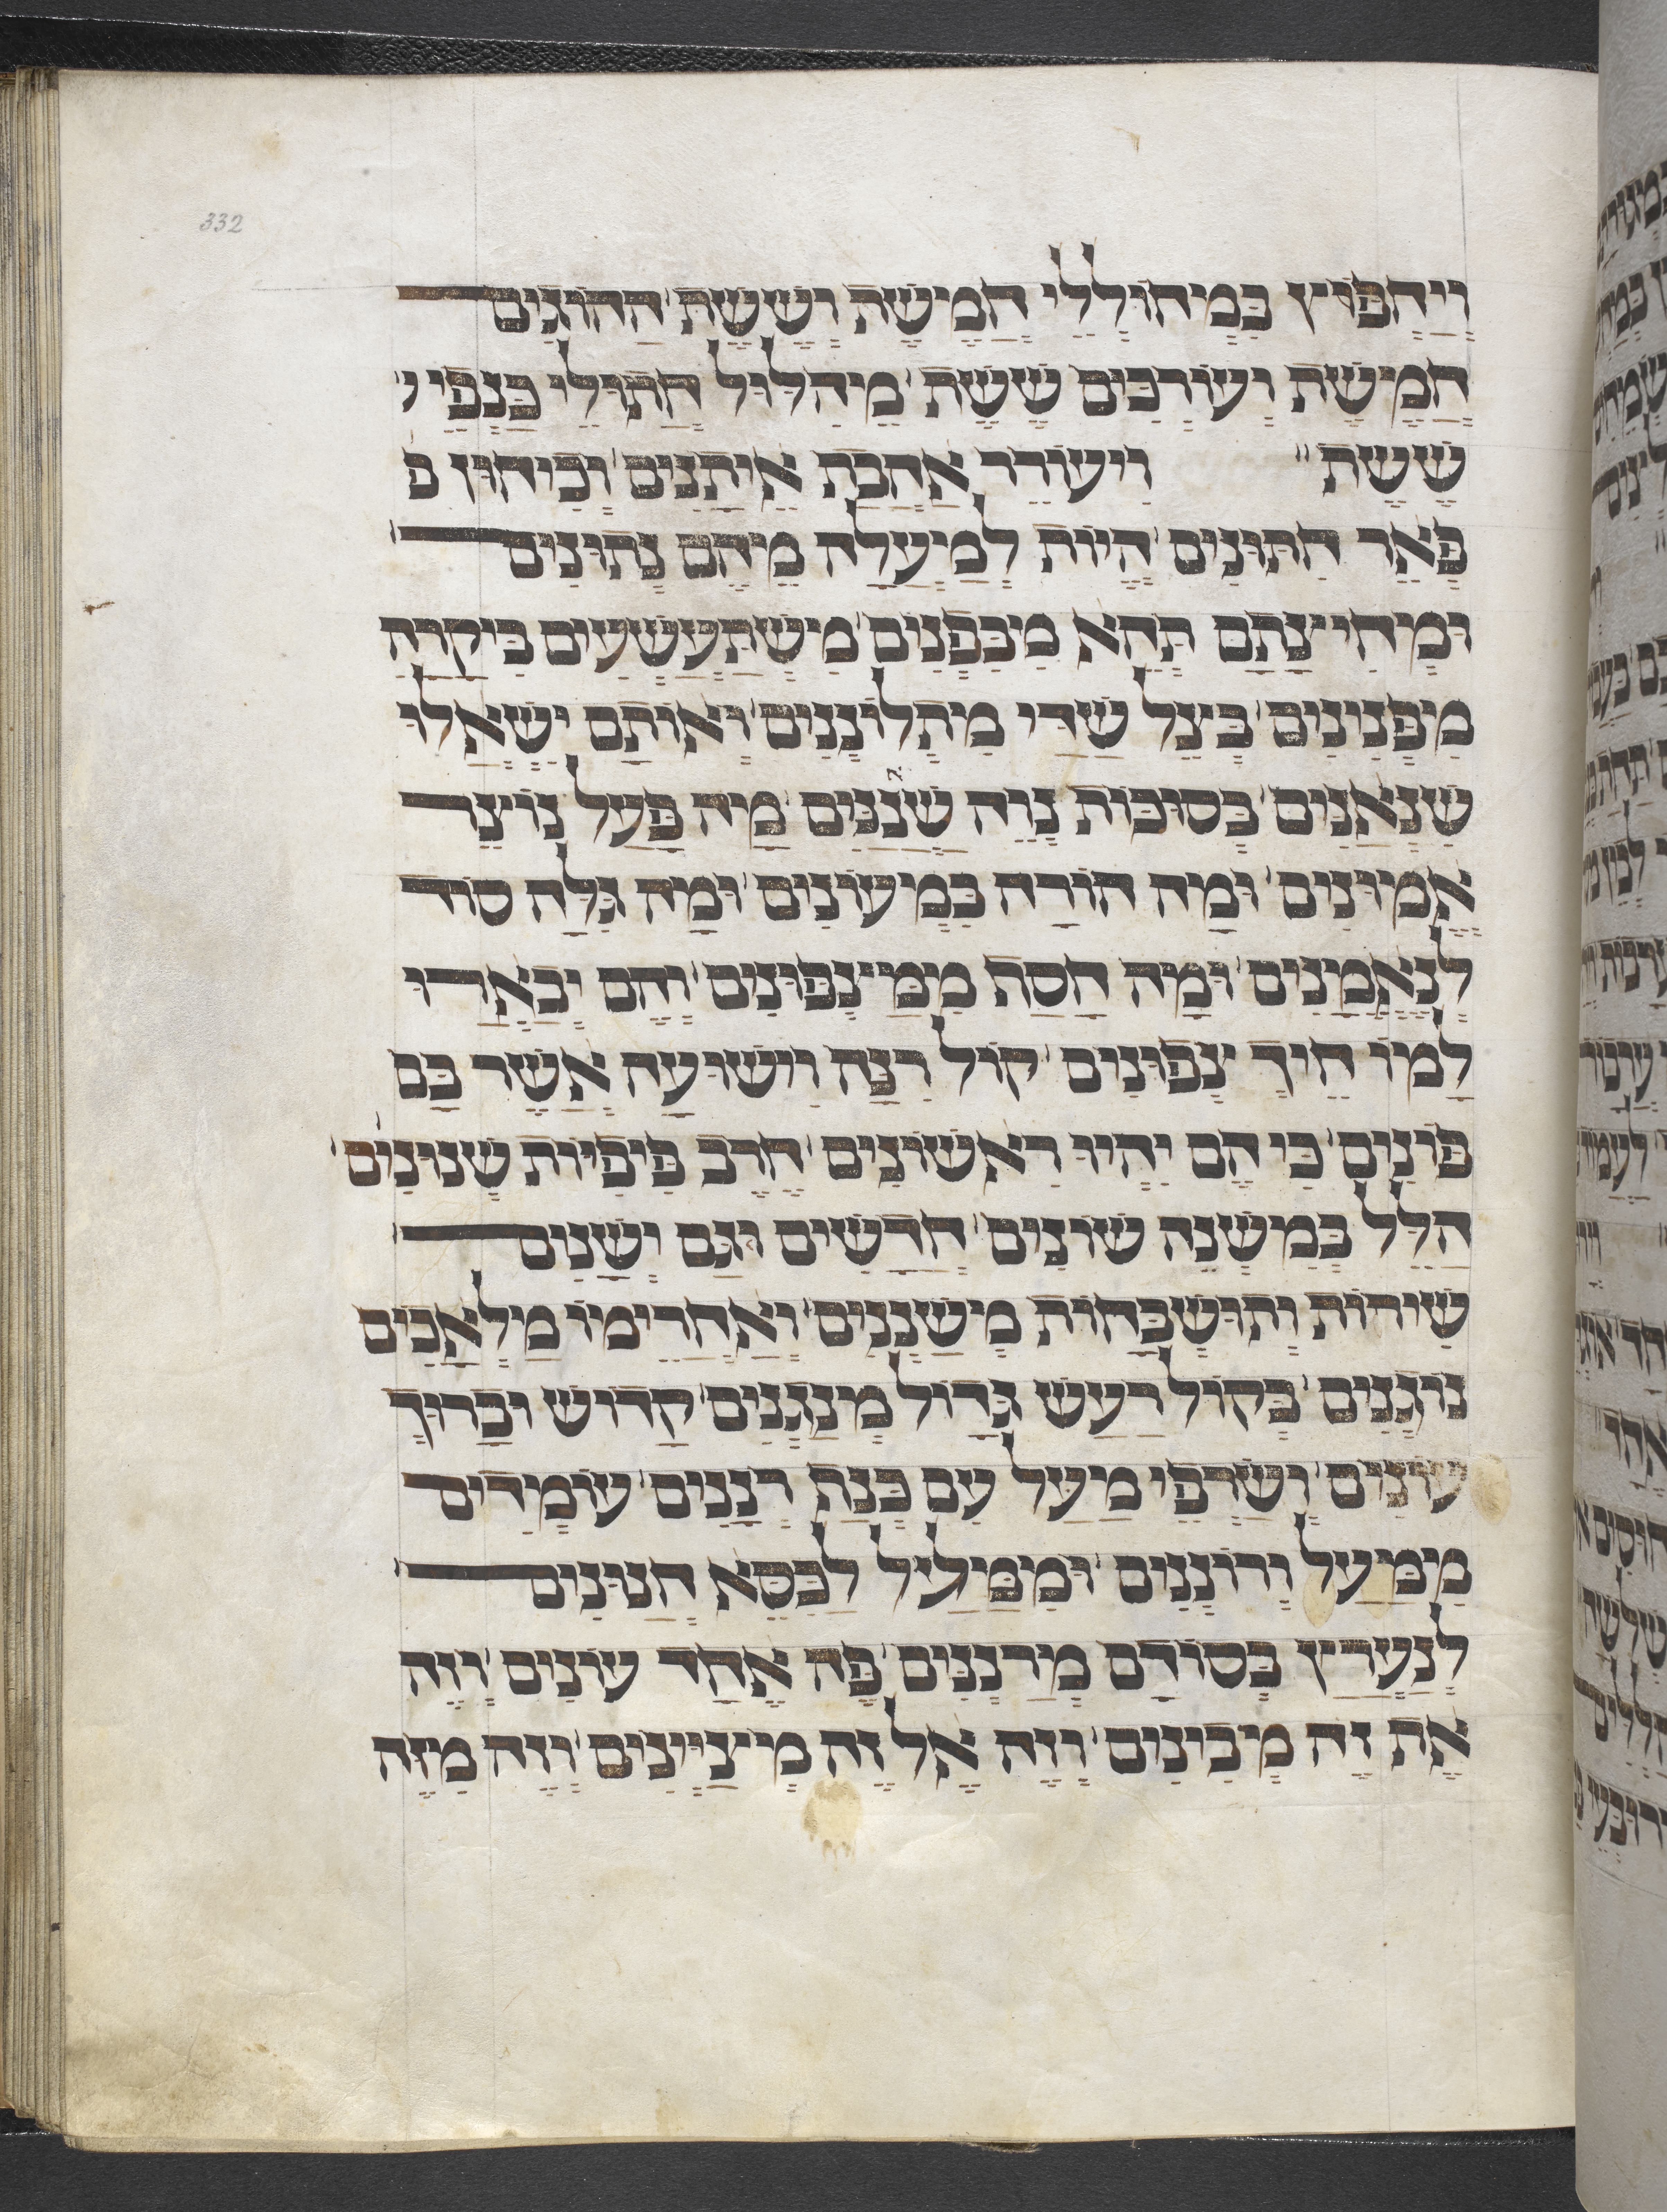 332
וְיַחְפּוֹץ בִּמְחוֹלְלֵי חֲמֵישֶׁת וְשֵׁשֶׁת הַהוֹגִים
חֲמֵישֶׁת וְעוֹרְכִים שֵׁשֶׁת מֵיהִלּוּל חֲתוּלֵי כַּנְפֵי
שֵׁשֶׁת וִיעוֹרֵר אַהֲבַת אֵיתָנִים וְכִיהוּן פ
פְּאֵר חִתּוּנִים הֱיוֹת לְמַעְלָה מֵהֶם נְתוּנִים
וּמְחִיצָתָם תְּהֵא מִבִּפְנִים מִשְׁתַּעְשְׁעִים בִּיקָרָה
מִפְּנִינִים בְּצֵל שַׁדַּי מִתְלוֹנְנִים וְאוֹתָם יִשְׁאֲלוּ
שִׁנְאַנִּים בְּסוּכּוֹת נְוֵה שַׁנַנִּים מַה פָּעַל נוֹצֵר
אֱמוּנִים וּמַה הוֹרָה בִּמְעוֹנִים וּמַה גִּלָּה סוֹד
לְנֶאֱמָנִים וּמַה חָסַת מִמַּצְפּוּנִים וְהֵם יְבָאֲרוּ
לָמוֹ חֵיךְ צְפוּנִים קוֹל רִנָּה וִישׁוּעָה אֲשֶׁר בָּם
פּוֹנִים כִּי הֵם יִהְיוּ רִאשׁוֹנִים חֶרֶב פִּיפִיּוֹת שְׁנוּנִים
הַלֵּל בְּמִשְׁנֶה שׁוֹנִים חֲדָשִׁים וְגַם יְשָׁנִים
שִׁירוֹת וְתוּשְׁבָּחוֹת מְשַׁנְּנִים וְאַחֲרֵימוֹ מַלְאָכִים
נוֹגְנִים בְּקוֹל רַעַשׁ גָּדוֹל מְנַגְּנִים קָדוֹשׁ וּבָרוּךְ
עוֹנִים וְשַׂרְפֵי מַעַל עִם כְּנַת רְנָנִים עוֹמְדִים
מִמַּעַל וְרוֹנְנִים וּמִמַּלֵּיל לְכִסֵּא חֲנוּנִים
לְנַעֲרָץ בְּסוֹדָם מְרַנְּנִים פֶּה אֶחָד עוֹנִים וְזֶה
אֶת זֶה מְבִינִים וְזֶה אֶל זֶה מְצַיְּינִים וְזֶה מִזֶּה